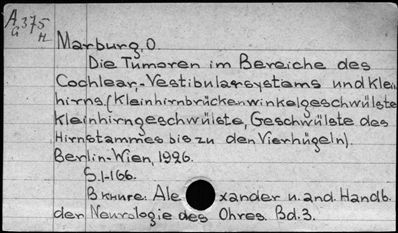 A 375
G H
Marburg, O.
Die Tumoren im Bereiche des
Cochlear,-Vestibularsystems und Klein
hirns (Kleinhirnbrückenwinkelgeschwülste
Kleinhirngeschwülste, Geschwülste des
Hirnstammes bis zu den Vierhügeln).
Berlin-Wien, 1926.
S.1-166.
В книге: Alexander u. and. Handb.
der Neurologie des Ohres. Bd.3.